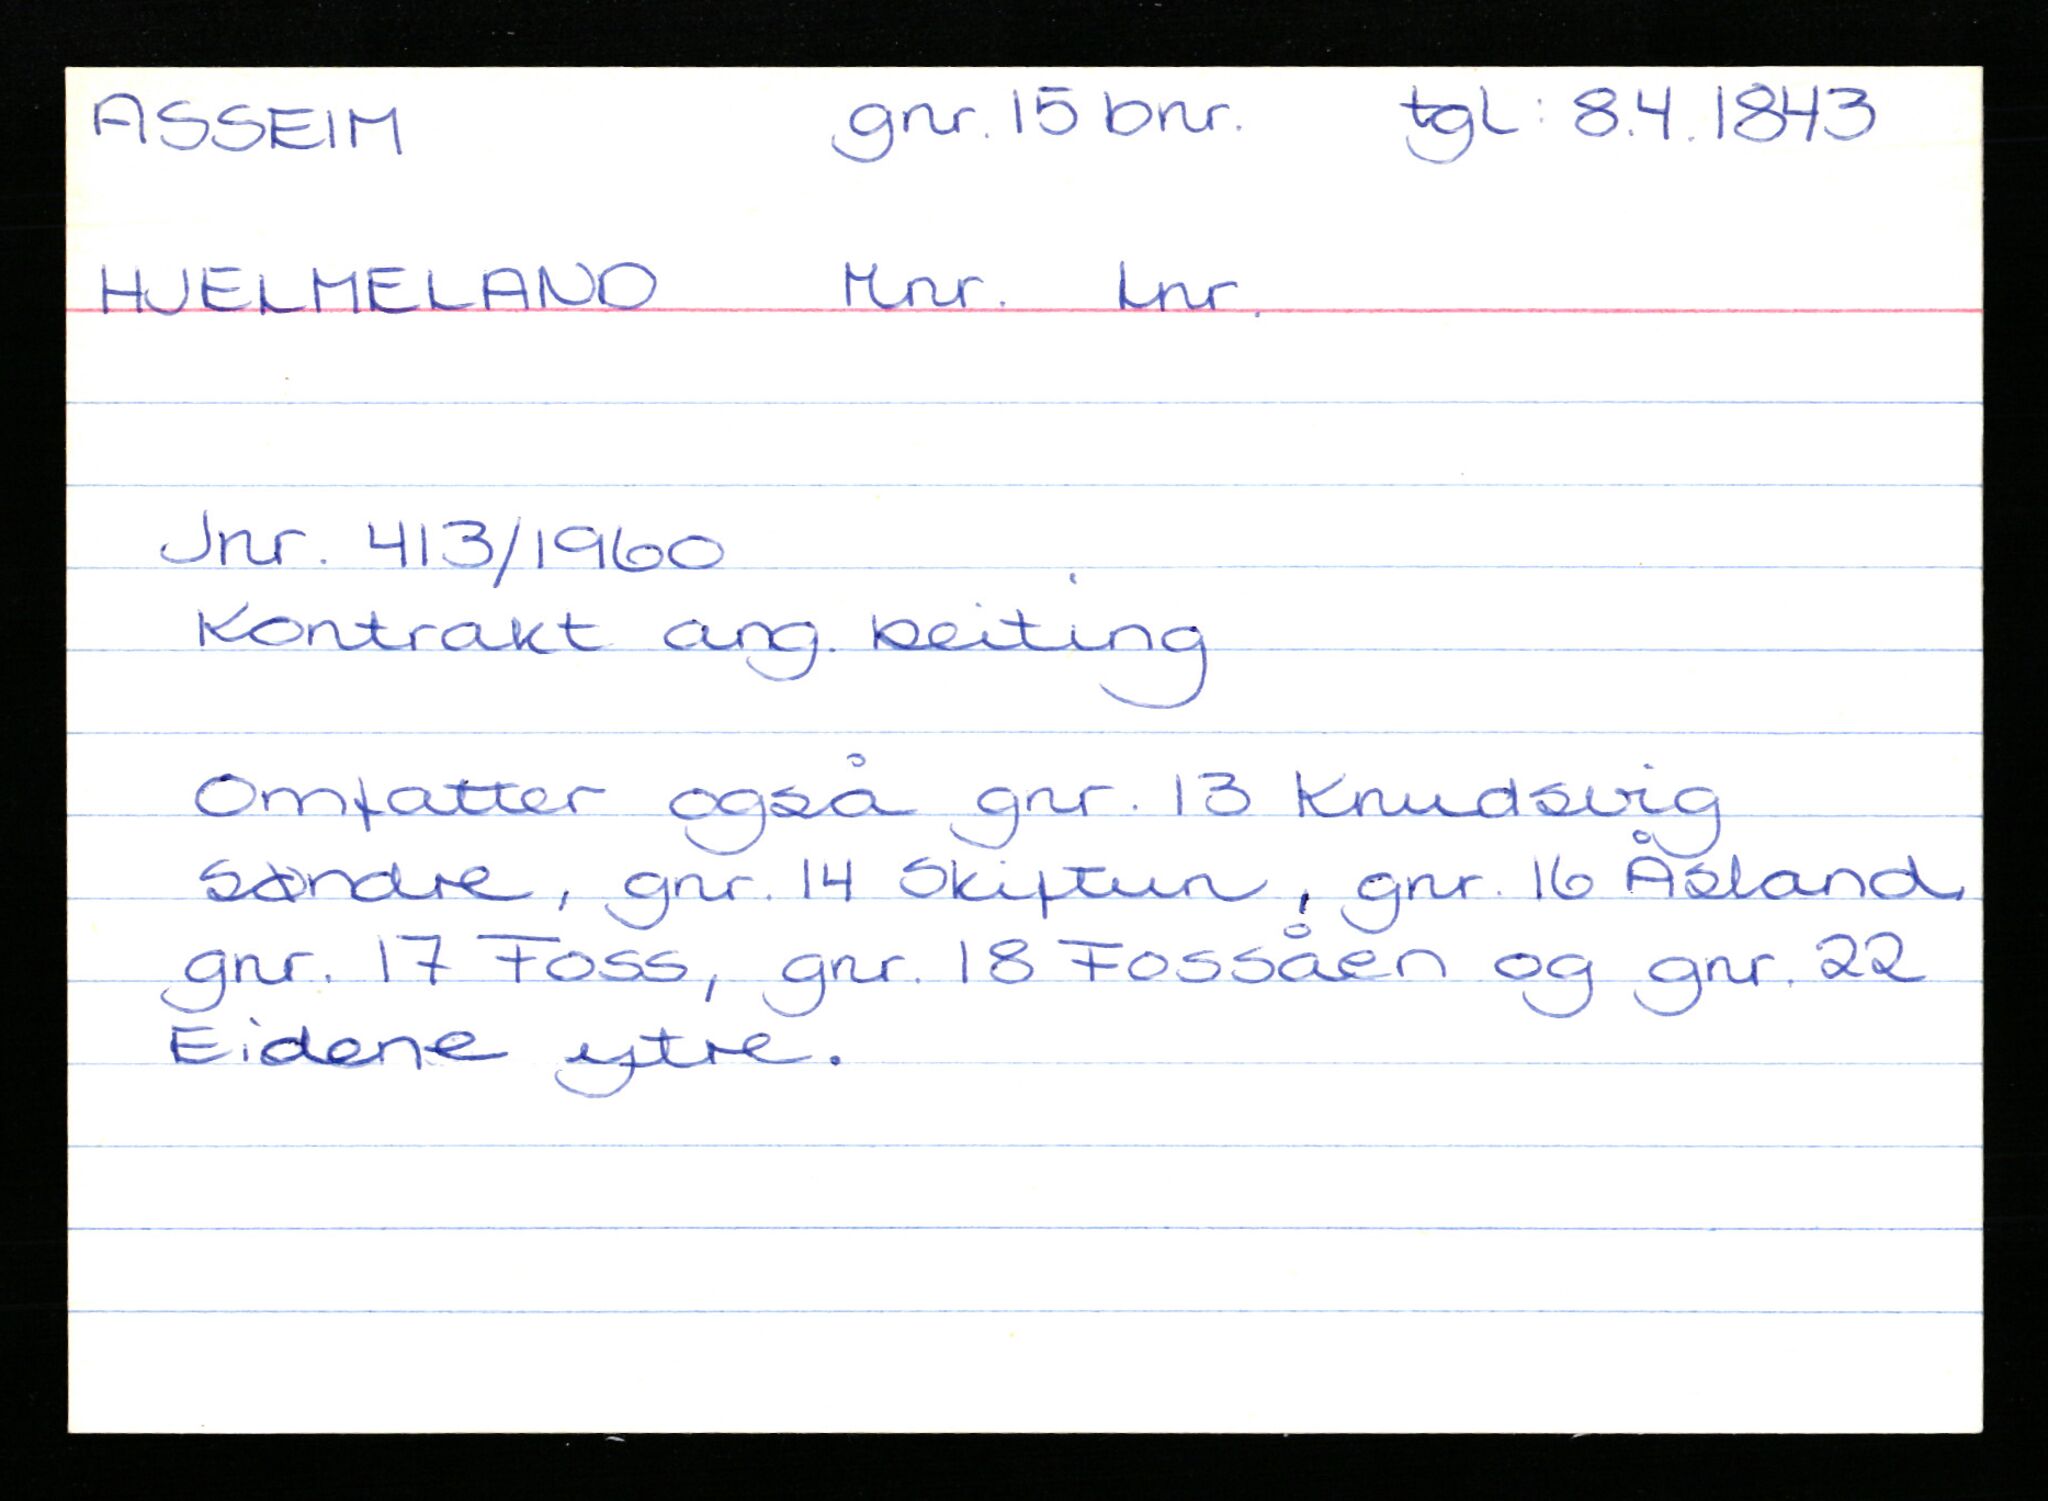 ASSEIM gnr. 15 bnr. tgl: 8.4.1843
HJELMELAND Mnr. Lnr.
Jnr. 413/1960
Kontrakt ang. beiting
Omfatter også gnr. 13 Knudsvig
søndre, gnr. 14 Skiftun, gnr. 16 Åsland,
gnr. 17 Foss, gnr. 18 Fossåen og gnr. 22
Eidene ytre.